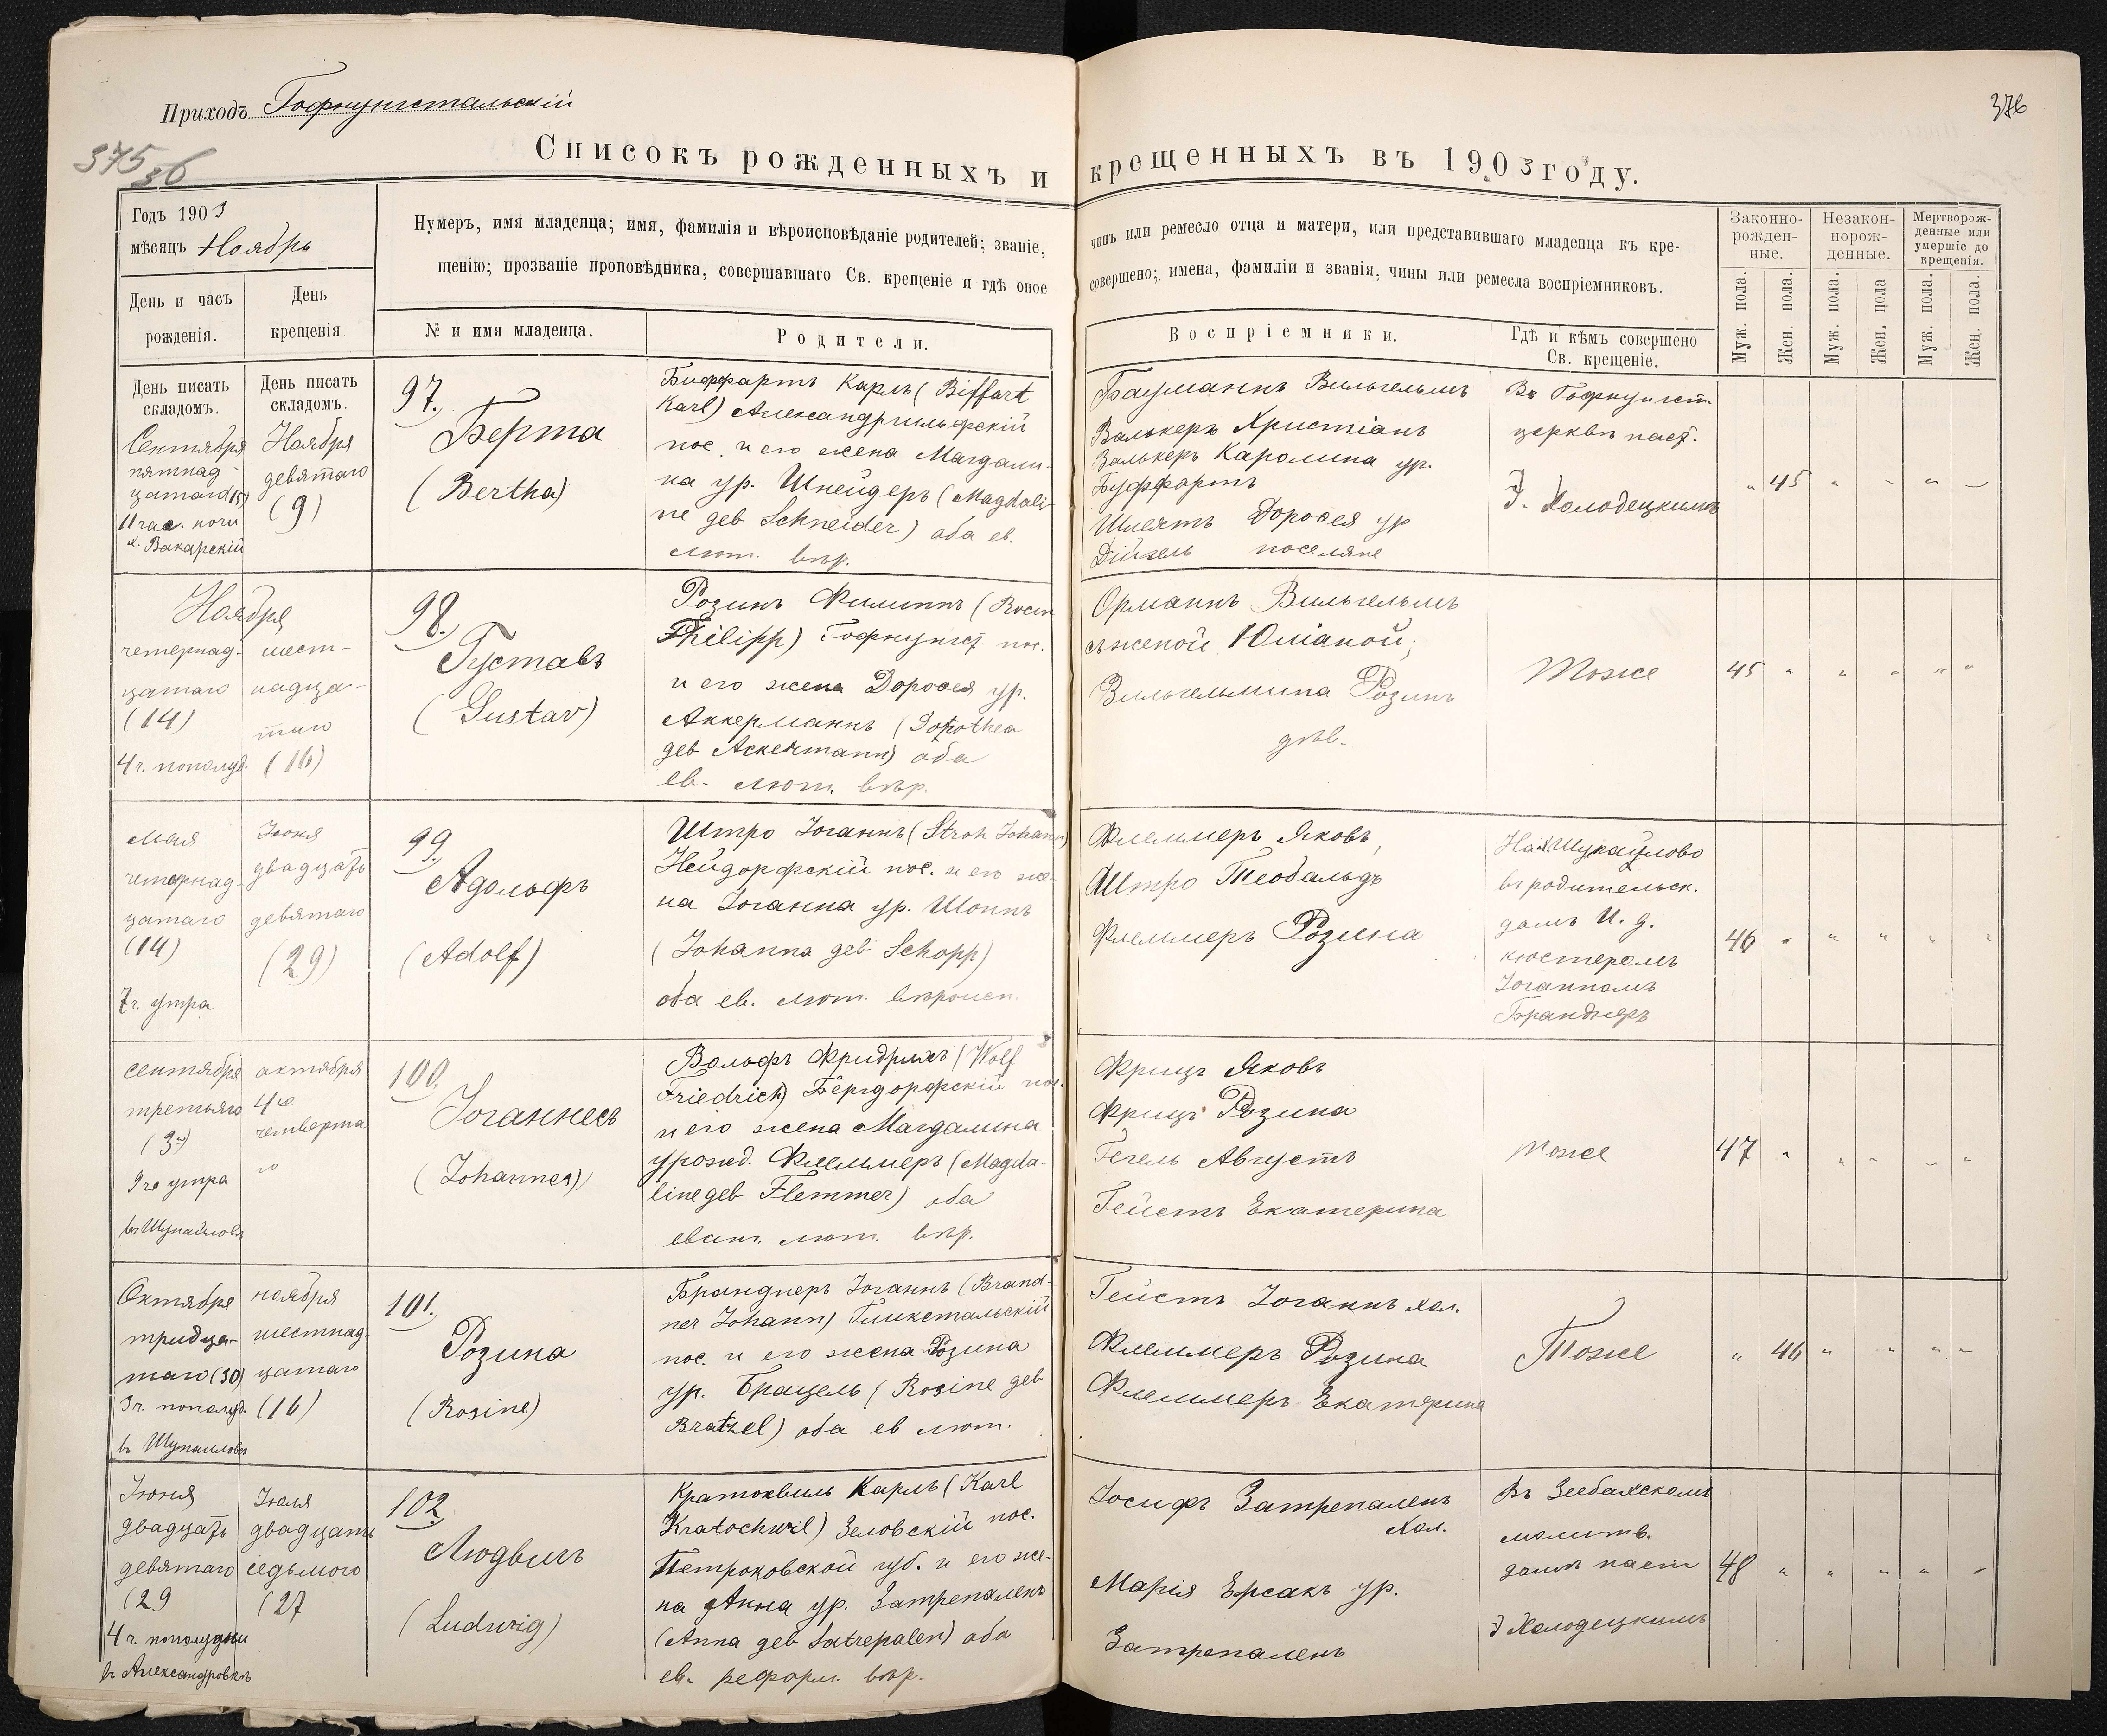 Приходъ Гофнунгстальскій
376
375 36
Списокъ рожденныхъ и крещенныхъ въ 1903 году.
Годъ 1903
мѣсяцъ Ноябрь
Нумеръ, имя младенца; имя, фамилія и вѣроисповѣданіе родителей; званіе, чинъ или ремесло отца и матери, или представившаго младенца къ кре-
щенію; прозваніе проповѣдника, совершавшаго Св. крещеніе и гдѣ оное совершено; имена, фамиліи и званія, чины или ремесла воспріемниковъ.
Законно-
рожден-
ные.
Незакон-
норож-
денные.
Мертворож-
денные или
умершіе до
крещенія.
День и часъ
рожденія.
День
крещенія
№ и имя младенца.
Родители.
Воспріемники.
Гдѣ и кѣмъ совершено
Св. крещеніе.
Муж. пола.
Жен. пола.
Муж. пола.
Жен. пола
Муж. пола.
Жен. пола.
День писать
складомъ.
День писать
складомъ.
Сентября
пятнад-
цатаго (15)
11 час. ночи
х. Вакарскій
Ноября
девятаго
(9)
97.
Берта
(Bertha)
Биффартъ Карлъ (Biffart
Karl) Александргильфскій
пос. и его жена Магдали-
на ур. Шнейдеръ (Magdali-
ne geb Schneider) оба ев.
лют. вѣр.
Бауманнъ Вильгельмъ
Валькеръ Христіанъ
Валькеръ Каролина ур.
Буффартъ
Шмятъ Доровея ур
Дійзель поселяне
Въ Гофнунгст.
церквѣ паст.
І. Холодецкимъ
" 45 " - " -
Ноября
четернад-
цатаго
(14)
4 ч. пополуд.
шест-
надца-
таго
(16)
98.
Густавъ
(Gustav)
Розинъ Филиппъ (Rosin
Philipp) Гофнунгст. пос.
и его жена Доровея ур.
Аккерманнъ (Dorothea
geb Ackermann) оба
ев. лют. вѣр.
Орманнъ Вильгельмъ
съ женой Юліаной;
Вильгельмина Розинъ
дѣв.
Тоже
45 " " " " "
Мая
четернад-
цатаго
(14)
7 ч. утра
Іюня
двадцать
девятаго
(29)
99.
Адольфъ
(Adolf)
Штро Іоганнъ (Stroh Johann)
Нейдорфскій пос. и его же-
на Іоганна ур. Шоппъ
(Johanna geb Schopp)
оба ев. лют. вѣроисп.
Флеммеръ Яковъ,
Штро Теобальдъ
Флеммеръ Розина
На х. Шупайлово
въ родительск.
домѣ И. д.
кюстеромъ
Іоганномъ
Брандперъ
46 " " " " "
сентября
третьяго
(3)
9 ча утра
въ Шупайловѣ
октября
4го
четверта
го
100.
Іоганнесъ
(Johannes)
Вольфъ Фридрихъ (Wolf
Friedrich) Бергдорфскій пос.
и его жена Магдалина
урожд. Флеммеръ (Magda-
line geb Flemmer) оба
еванг. лют. вѣр.
Фрицъ Яковъ
Фрицъ Розина
Гегель Августъ
Гейстъ Екатерина
Тоже
47 " " " " "
Октября
тридца-
таго (30)
3 ч. пополуд.
въ Шупаиловѣ
ноября
шестнад-
цатаго
(16)
101.
Розина
(Rosine)
Бранднеръ Іоганнъ (Brand-
ner Johann) Глюкстальскій
пос. и его жена Розина
ур. Брацель (Rosine geb
Bratzel) оба ев лют.
Гейстъ Іоганнъ хол.
Флеммеръ Розина
Флеммеръ Екатерина
Тоже
" 46 " " " "
Іюня
двадцать
девятаго
(29
4 ч. пополудни
въ Александровкѣ
Іюля
двадцать
седьмого
(27
102
Людвигъ
(Ludwig)
Кратохвиль Карлъ (Karl
Kratochwil) Зеловскій пос.
Петроковской губ. и его же-
на Анна ур. Затрепаленъ
(Anna geb Satrepalen) оба
ев. реформ. вѣр.
Іосифъ Затрепаленъ
хол.
Марія Ерсакъ ур.
Затрепаленъ
Въ Зеебахскомъ
молитв.
домѣ паст
І Холодецкимъ
48 " " " " "